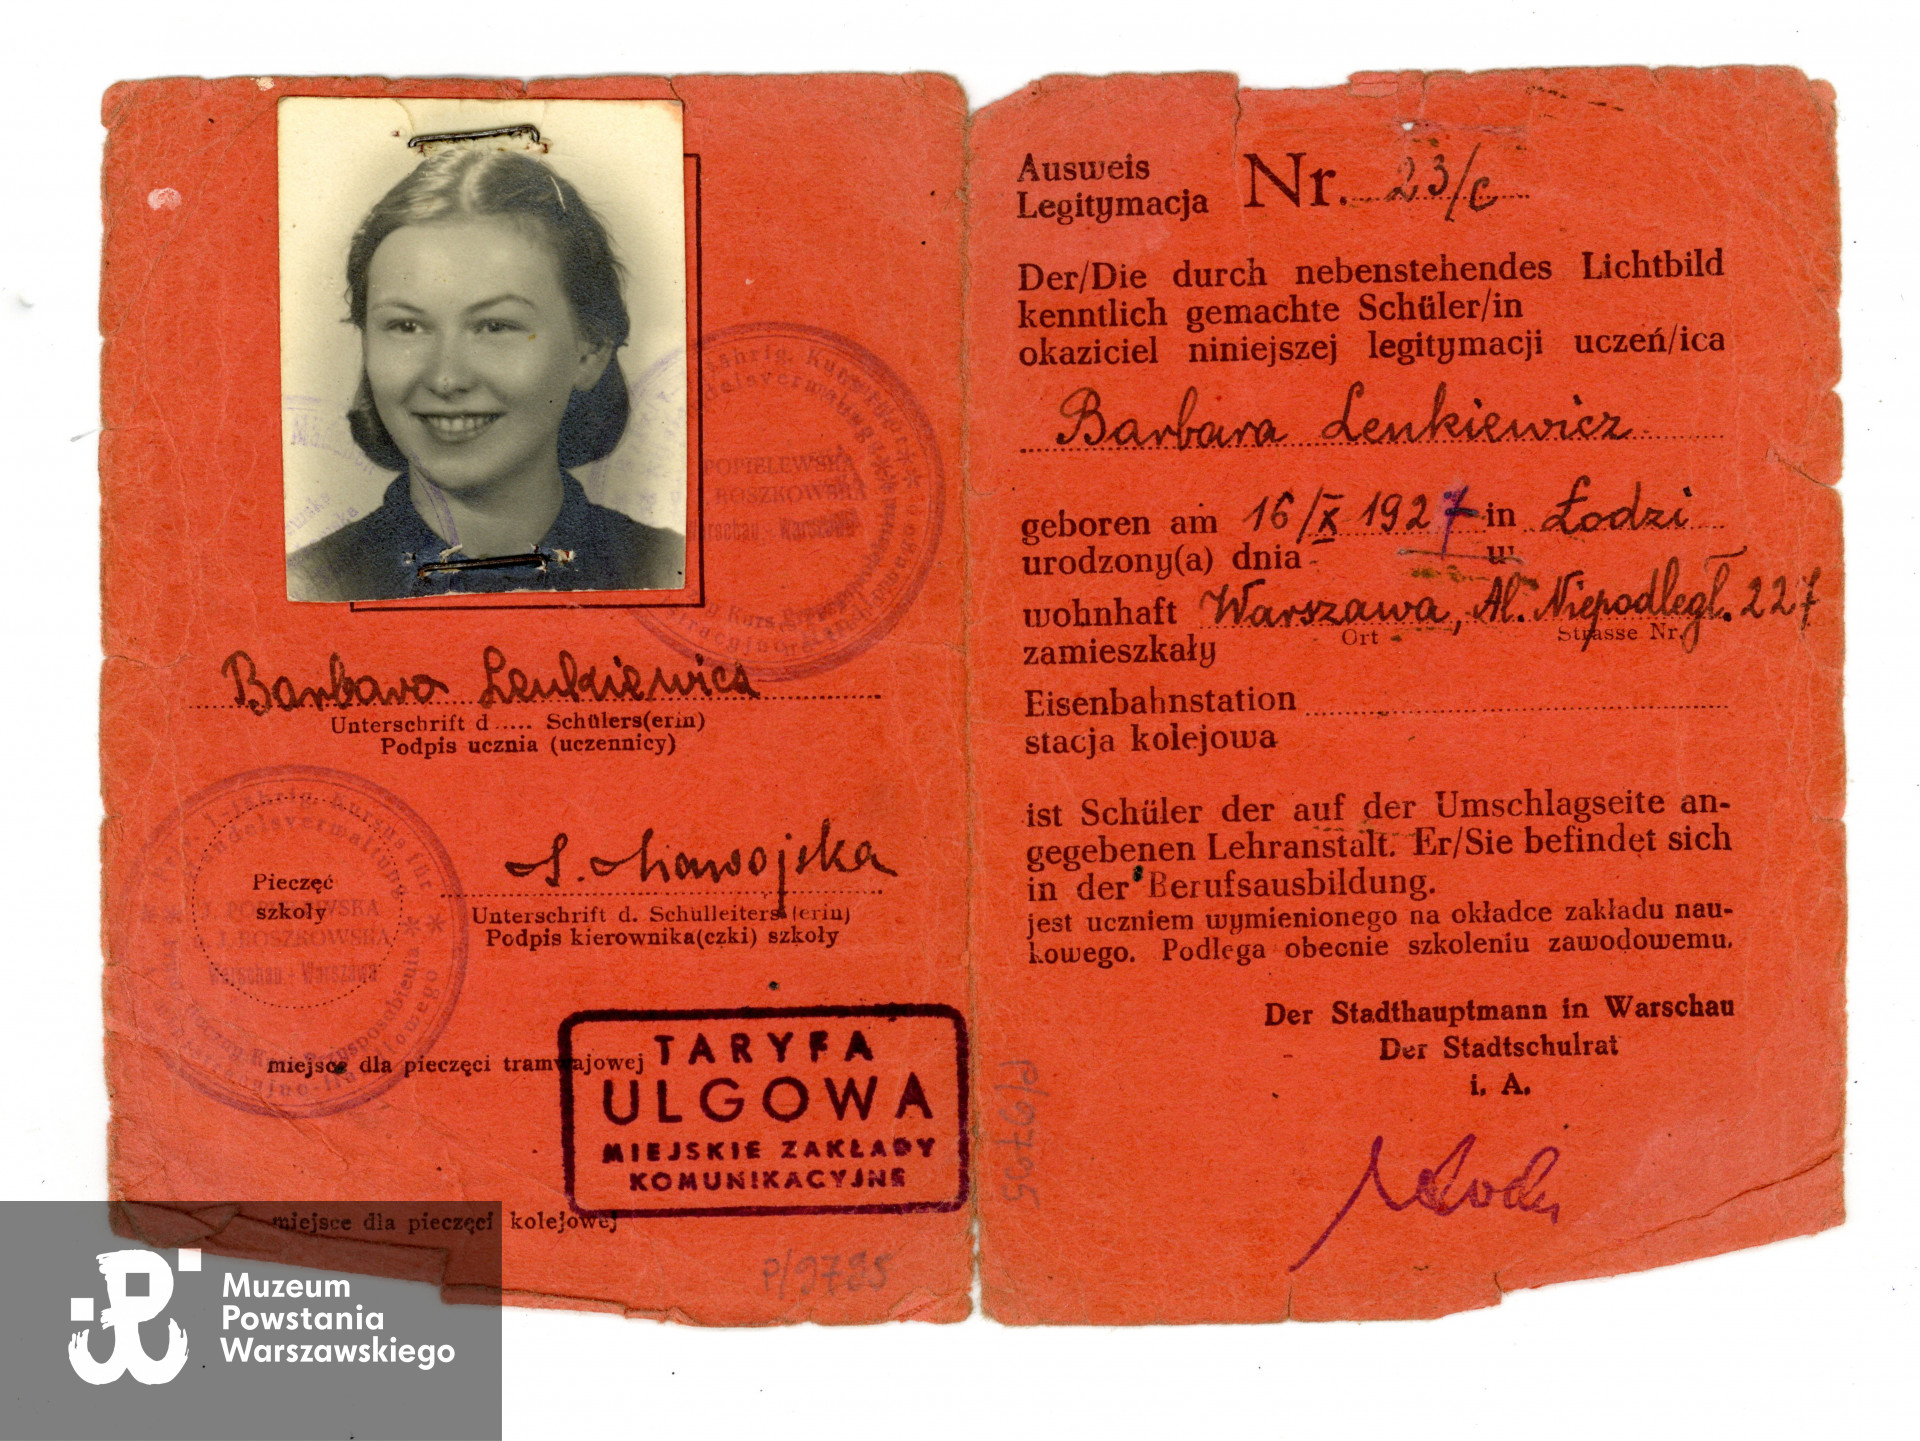 Barbara Lenkiewicz
Unterschrift d ..... Schülers(erin)
Podpis ucznia (uczennicy)
POPIELEWSKA
ROSZKOWSKA
Warschau - Warszawa
Pieczęć
szkoły
Unterschrift d. Schulleiters (erin)
Podpis kierownika(czki) szkoły
miejsce dla pieczęci tramwajowej
TARYFA
ULGOWA
MIEJSKIE ZAKŁADY
KOMUNIKACYJNE
miejsce dla pieczęci kolejowej
P/9785
Ausweis
Legitymacja Nr. 23/c
Der/Die durch nebenstehendes Lichtbild
kenntlich gemachte Schüler/in
okaziciel niniejszej legitymacji uczeń/ica
Barbara Lenkiewicz
geboren am 16/X 1927 in Łodzi
urodzony(a) dnia w
wohnhaft Warszawa, Al. Niepodległ. 227
Ort Strasse Nr.
zamieszkały
Eisenbahnstation
stacja kolejowa
ist Schüler der auf der Umschlagseite an-
gegebenen Lehranstalt. Er/Sie befindet sich
in der Berufsausbildung.
jest uczniem wymienionego na okładce zakładu nau-
kowego. Podlega obecnie szkoleniu zawodowemu.
Der Stadthauptmann in Warschau
Der Stadtschulrat
i. A.
Muzeum
Powstania
Warszawskiego